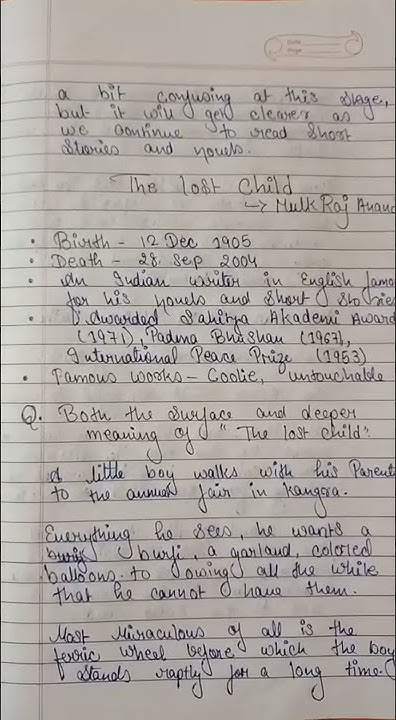 Date
Page
a bit confusing at this stage,
but it will get clearer as
we continue to read short
stories and novels.
The lost Child
↳ Mulk Raj Anand
• Birth - 12 Dec 1905
• Death - 28 Sep 2004
• An Indian writer in English famo
for his novels and short stories
• Awarded Sahitya Akademi Award
(1971), Padma Bhushan (1967),
International Peace Prize (1953)
• Famous works - Coolie, untouchable
Q. Both the surface and deeper
meaning of "The lost child".
A little boy walks with his Parent
to the annual fair in Kangra.
Everything he sees, he wants a
burfi, a garland, colored
balloons to owing all the while
that he cannot have them.
Most Miraculous of all is the
ferric wheel before which the boy
stands raptly for a long time.